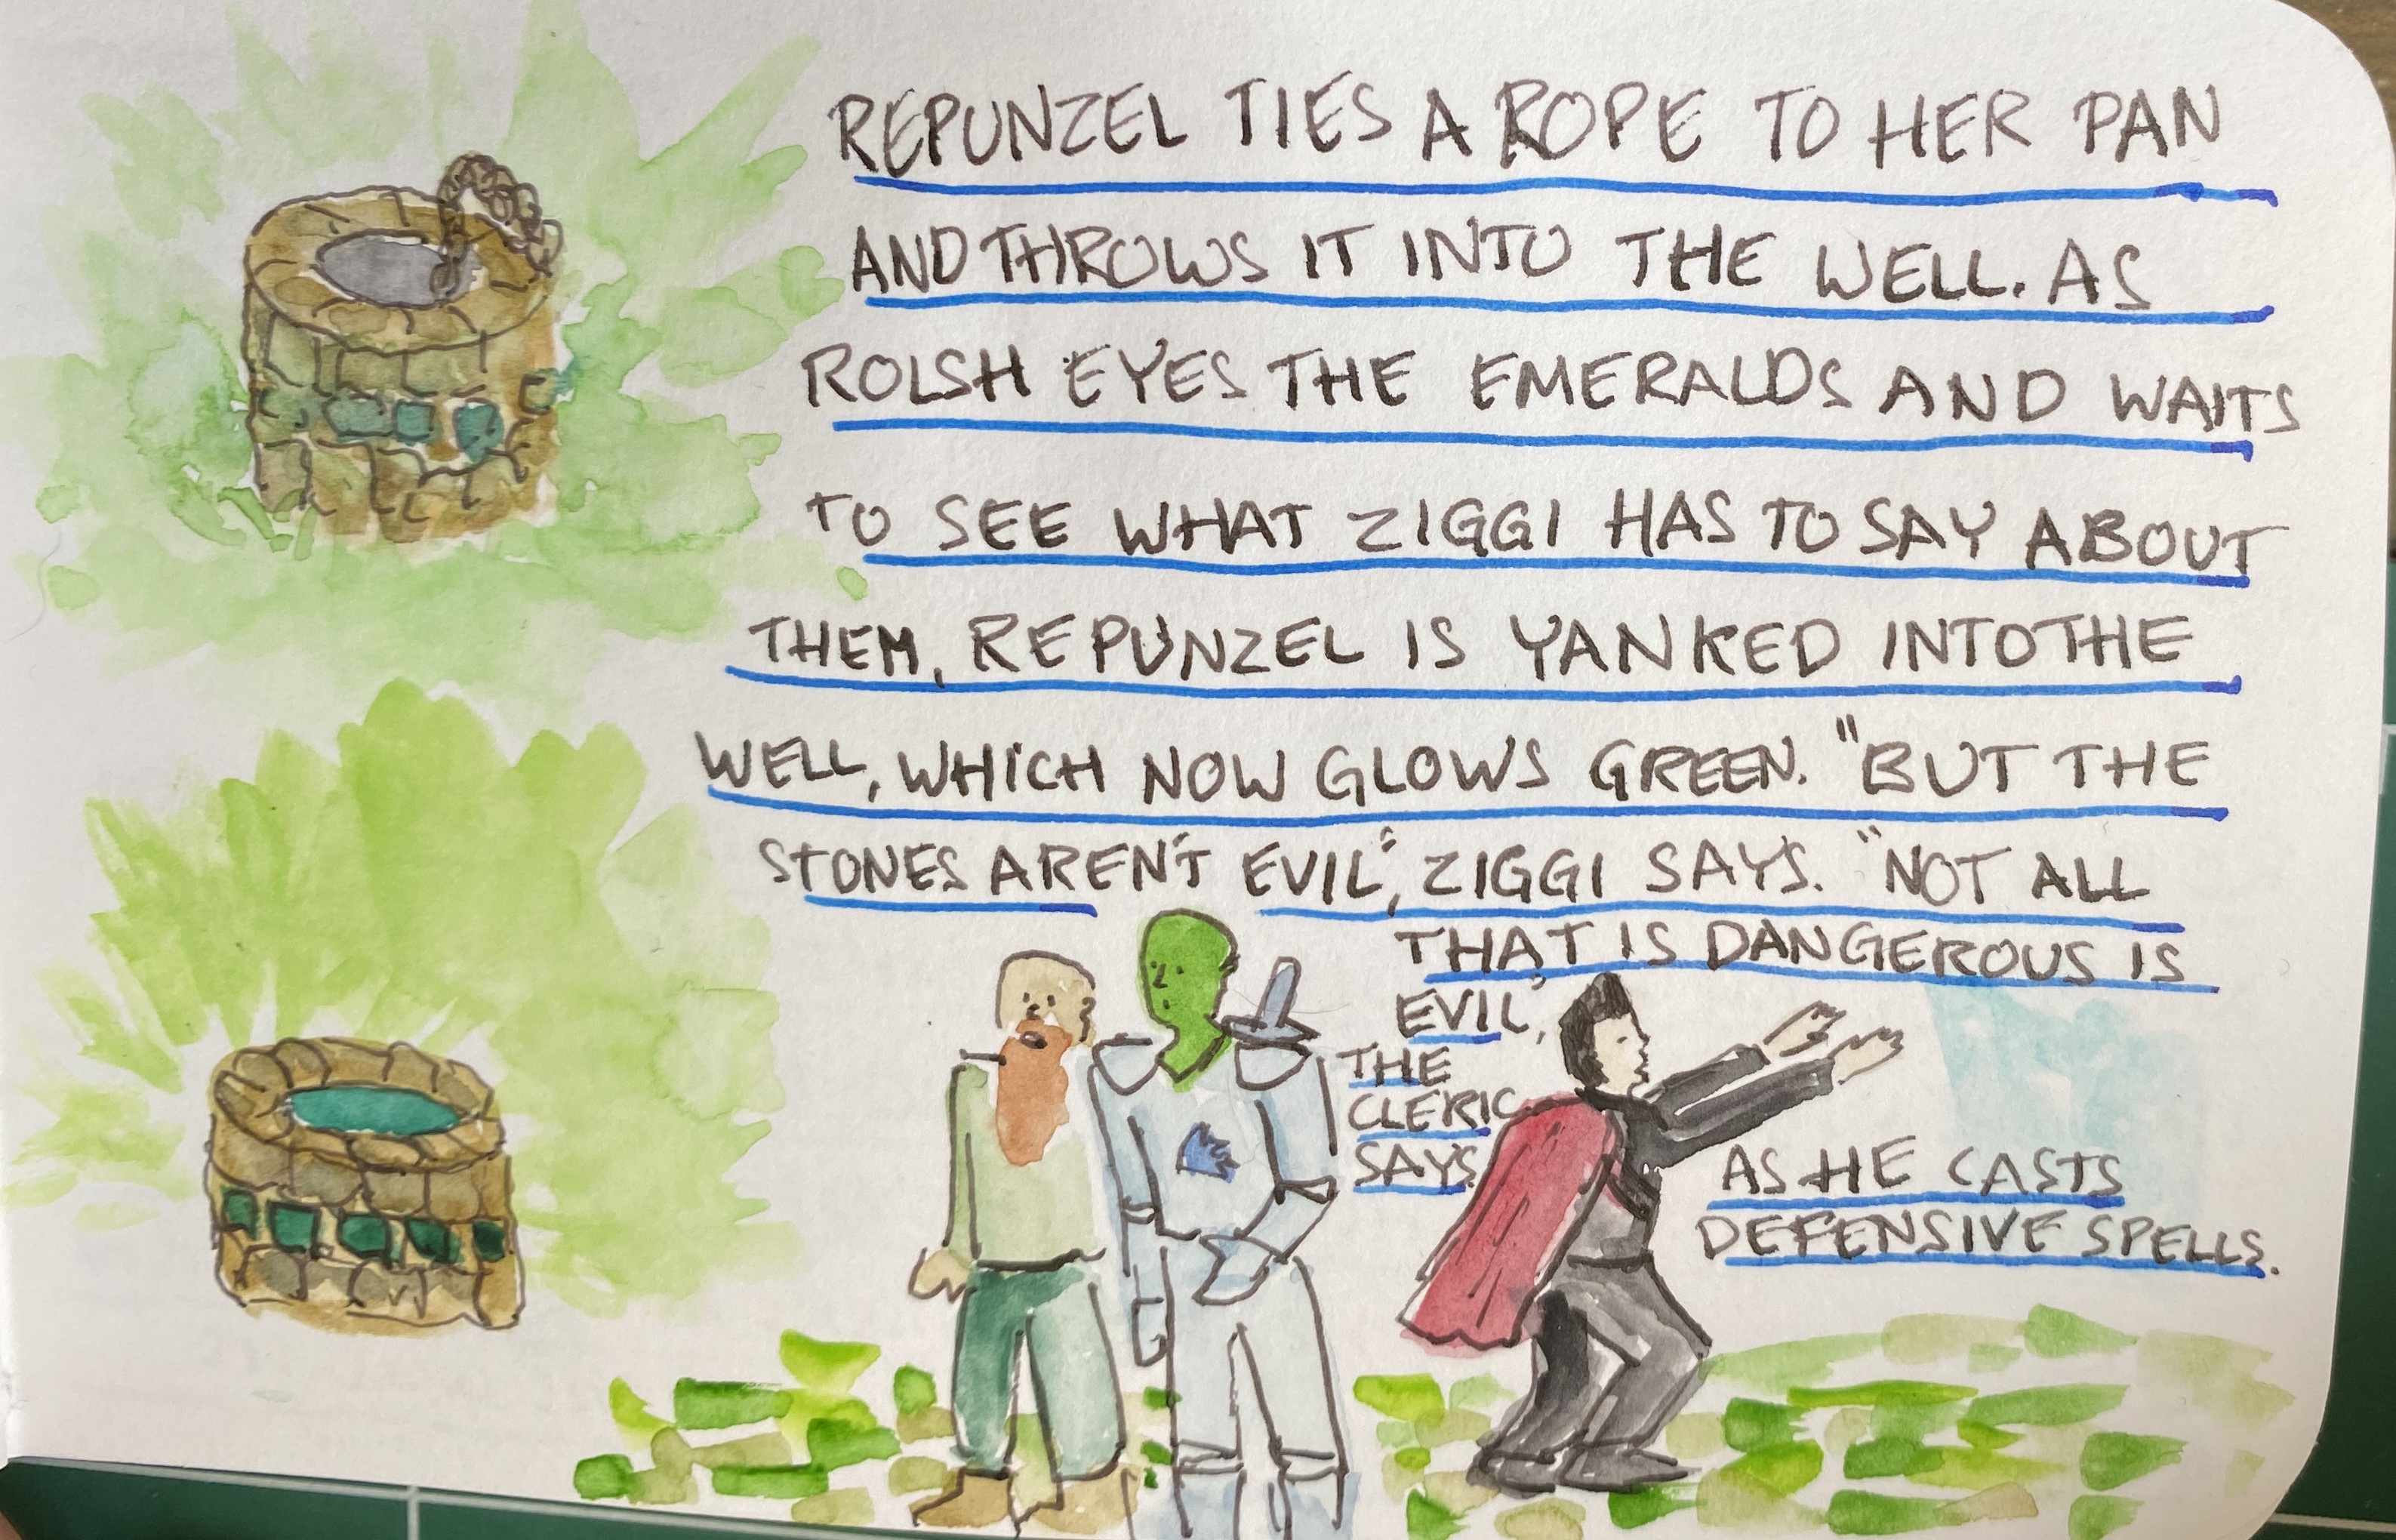 REPUNZEL TIES A ROPE TO HER PAN
AND THROWS IT INTO THE WELL. AS
ROLSH EYES THE EMERALDS AND WAITS
TO SEE WHAT ZIGGI HAS TO SAY ABOUT
THEM, REPUNZEL IS YANKED INTO THE
WELL, WHICH NOW GLOWS GREEN. "BUT THE
STONES AREN'T EVIL", ZIGGI SAYS. "NOT ALL
THAT IS DANGEROUS IS
EVIL",
THE
CLERIC
SAYS.
AS HE CASTS
DEFENSIVE SPELLS.